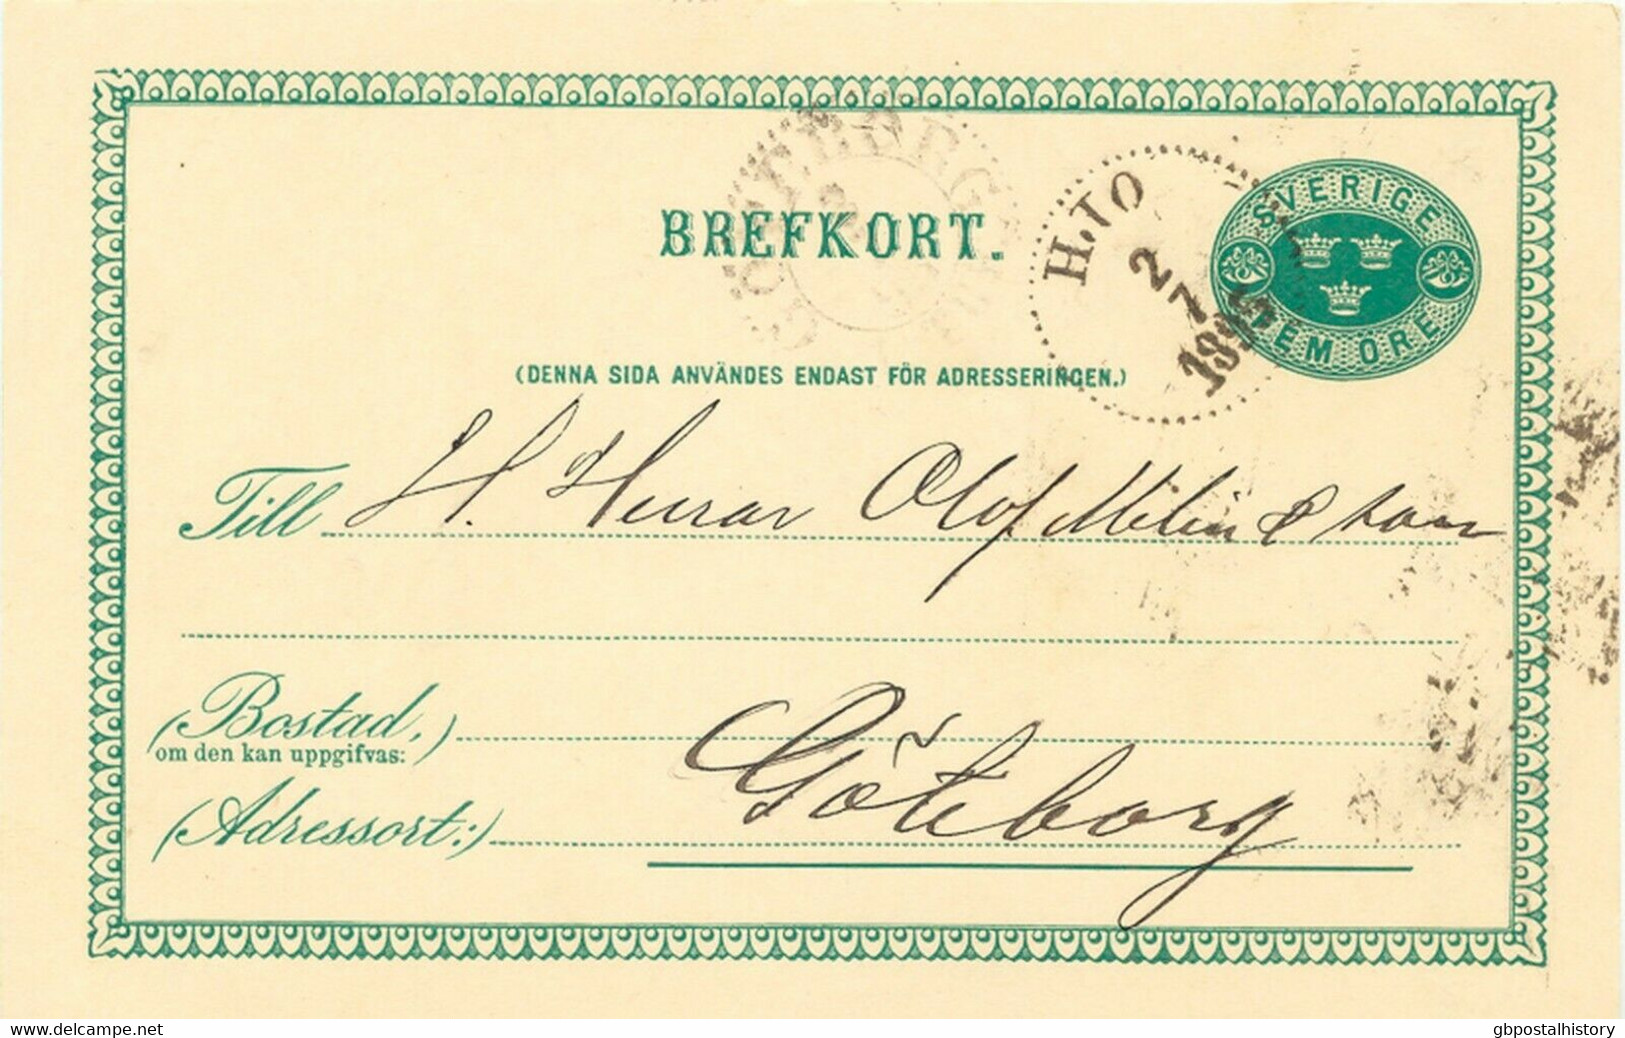 SVERIGE
FEM ÖRE
GÖTEBORG
HJO
2
7
1895
BREFKORT.
(DENNA SIDA ANVÄNDES ENDAST FÖR ADRESSERINGEN.)
Till H. Herrar Olof Melin & Son
(Bostad,)
om den kan uppgifvas:
(Adressort:) Göteborg
www.delcampe.net
gbpostalhistory